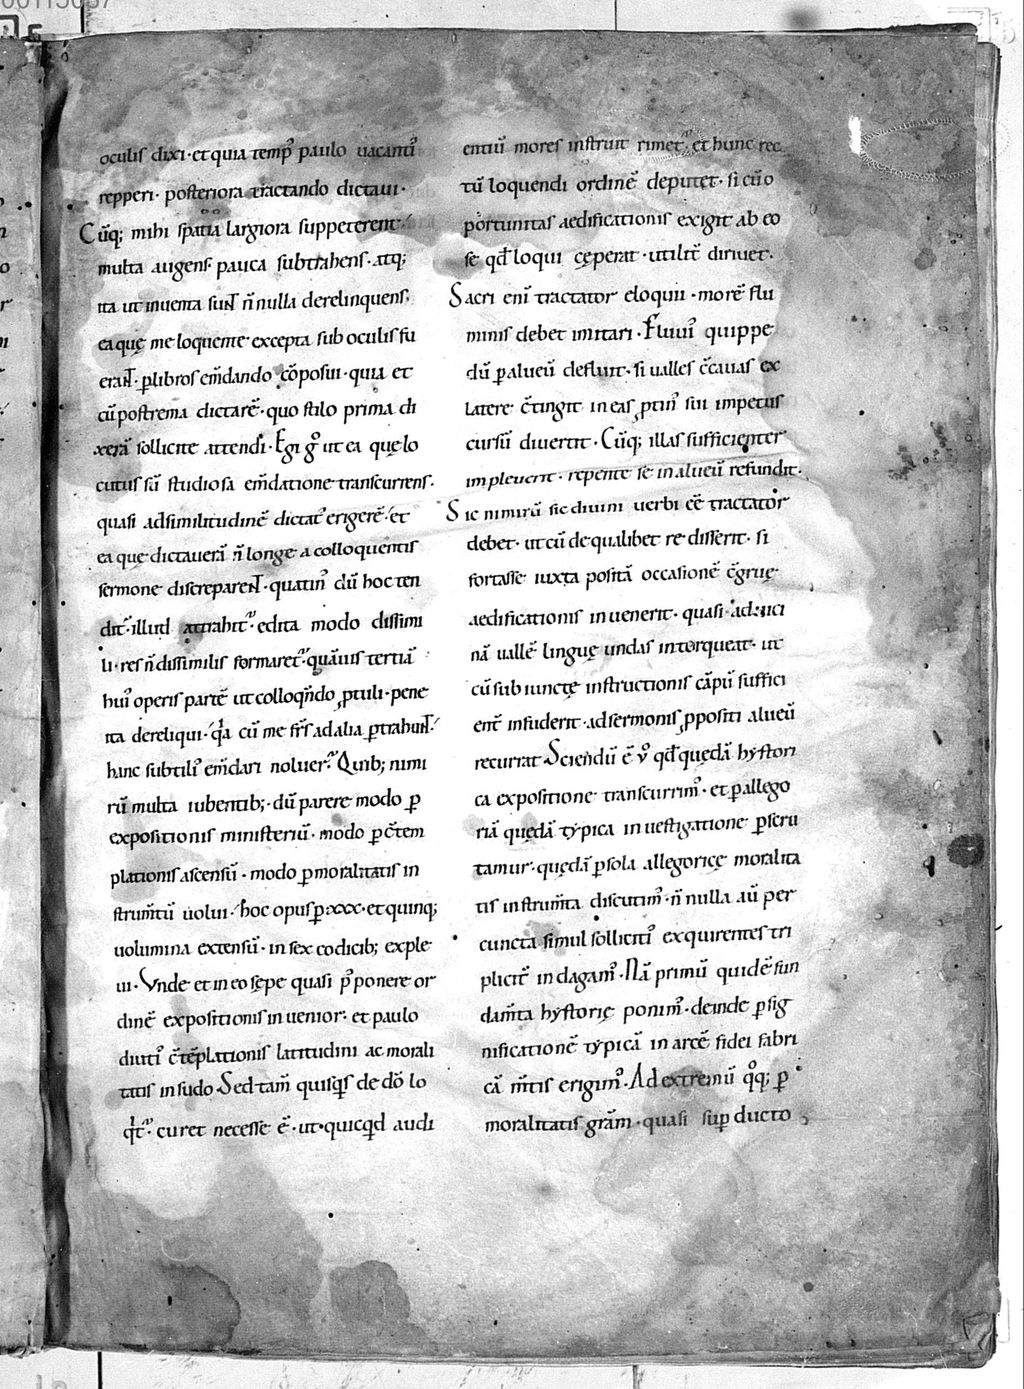 oculis dixi· et quia temp᾽ paulo uacanti᾽
repperi· posteriora tractando dictaui·
Cu᷑q; mihi spatia largiora suppeterent·
multa augens pauca subtrahens· atq;
ita ut inuenta sunt n̄ nulla derelinquens;
ea quę me loquente excepta sub oculis fu
erant· ꝑ libros em̄dando cōposui· quia et
cū postrema dictarē· quo stilo prima di
xerā sollicite attendi· Egi gͦ ut ea quę lo
cutus sū studiosa em̄datione transcurrens·
quasi ad similitudinē dictat᾽ erigerē· et
ea quę dictauerā n̄ longe a colloquentis
sermone discreparent· quatin᾽ dū hoc ten
dit᾽· illud attrahit᾽· edita modo dissimi
li· res n̄ dissimilis formaret᾽· quāuis tertiā
hui᾽ operis partē ut colloqn̄do ꝓtuli· pene
ita dereliqui· qͥa cū me frs̄ ad alia ꝑtrahunt·
hanc subtili᾽ em̄dari noluer᾽· Quib; nimi
rū multa iubentib;· dū parere modo ꝑ
expositionis ministeriū· modo ꝑ c̄tem
plationis ascensū· modo ꝑ moralitatis in
strum̄tū uolui· hoc opus ꝑ xxx· et quinq;
uolumina extensū· in sex codicib; exple
ui· Vnde et in eo sępe quasi p᾽ponere or
dinē expositionis inuenior· et paulo
diuti᾽ c̄tēplationis latitudini ac morali
tatis insudo· Sed tam̄ quisqͥs de dō lo
qͥt᾽· curet necesse ē· ut quicqͥd audi
entiū mores instruit rimet᾽· et hunc rec
tū loquendi ordinē deputet· si cū o
portunitas aedificationis exigit ab eo
se qd̄ loqui cęperat· utilit̄ diriuet·
Sacri eni᷑ tractator eloquii· morē flu
minis debet imitari· Fluui᾽ quippe
dū ꝑ alueū defluit· si ualles c̄cauas ex
latere c̄tingit in eas ꝓtin᾽ sui impetus
cursū diuertit· Cūq; illas sufficienter
impleuerit· repente se in alueū refundit·
Sic nimirū sic diuini uerbi ēē tractator
debet· ut cū de qualibet re disserit· si
fortasse iuxta positā occasionē c̄gruę
aedificationis inuenerit· quasi ad uici
nā uallē linguę undas intorqueat· ut
cū subiunctę instructionis cāpū suffici
ent̄ infuderit· ad sermonis ꝓpositi alueū
recurrat· Sciendū ē ūͦ qd̄ quędā hystori
ca expositione transcurrim᾽· et ꝑ allego
riā quędā typica inuestigatione ꝑscru
tamur· quędā ꝑ sola allegoricę moralita
tis instrum̄ta discutim᾽· n̄ nulla aū per
cuncta simul solliciti᾽ exquirentes tri
plicit̄ indagam᾽· Nā primū quidē fun
dam̄ta hystorię ponim᾽· deinde ꝑ sig
nificationē typicā in arcē fidei fabri
cā m̄tis erigim᾽· Ad extremū qͦq; ꝑ
moralitatis grām· quasi suꝑ ducto